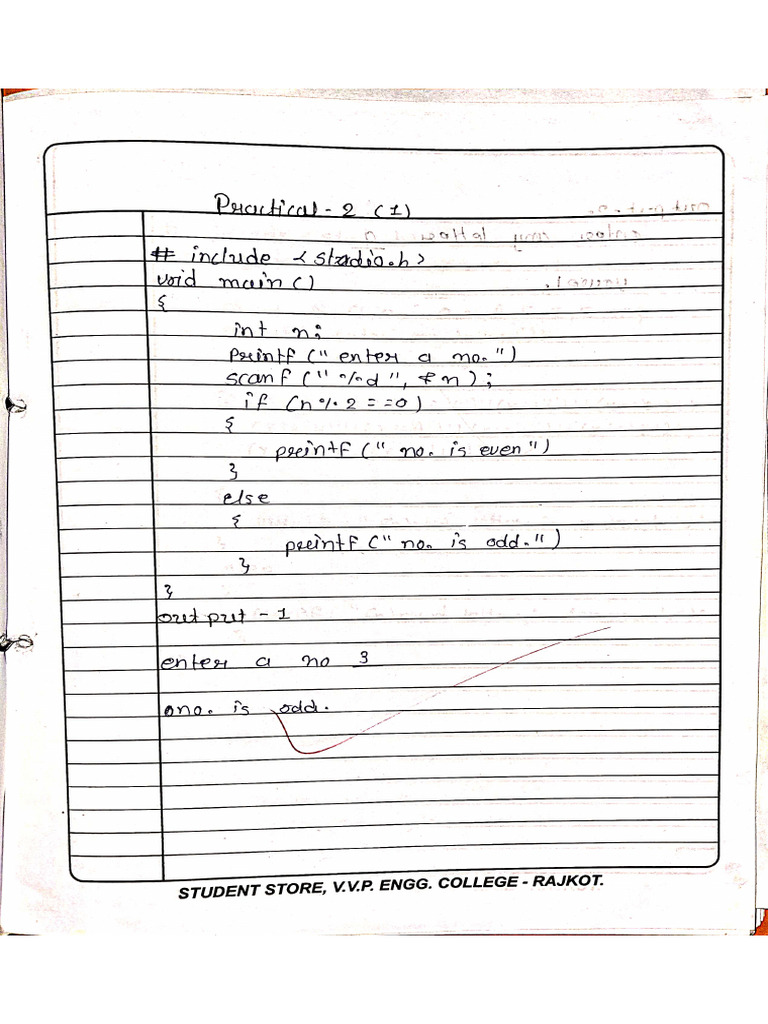 Practical - 2 (1)
# include <stdio.h>
void main()
{
int n;
printf (" enter a no.")
scanf (" %d ", &n);
if (n % 2 = = 0)
{
printf (" no. is even")
}
else
{
printf (" no. is odd.")
}
}
output - 1
enter a no 3
no. is odd.
STUDENT STORE, V.V.P. ENGG. COLLEGE - RAJKOT.